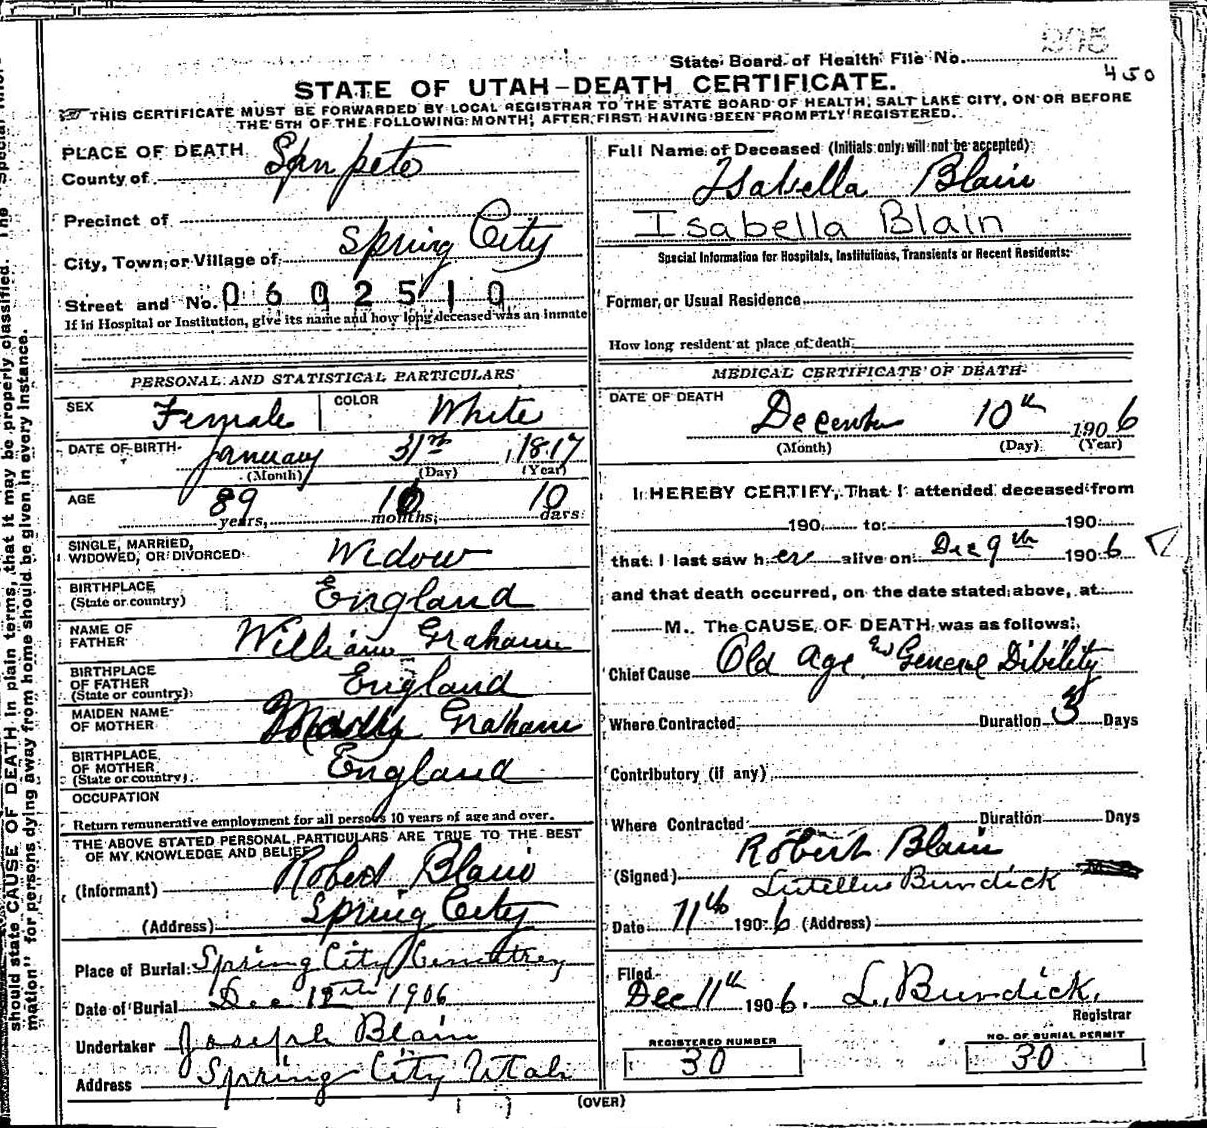 State Board of Health File No.
450
STATE OF UTAH-DEATH CERTIFICATE.
THIS CERTIFICATE MUST BE FORWARDED BY LOCAL REGISTRAR TO THE STATE BOARD OF HEALTH, SALT LAKE CITY, ON OR BEFORE
THE 5TH OF THE FOLLOWING MONTH, AFTER FIRST HAVING BEEN PROMPTLY REGISTERED.
PLACE OF DEATH
County of San pete
Precinct of
City, Town or Village of Spring City
Street and No. 0602510
If in Hospital or Institution, give its name and how long deceased was an inmate
PERSONAL AND STATISTICAL PARTICULARS
SEX Female COLOR White
DATE OF BIRTH January 31st 1817
(Month) (Day) (Year)
AGE 89 years, 10 months, 10 days
SINGLE, MARRIED,
WIDOWED, OR DIVORCED Widow
BIRTHPLACE
(State or country) England
NAME OF
FATHER William Graham
BIRTHPLACE
OF FATHER
(State or country) England
MAIDEN NAME
OF MOTHER Graham
BIRTHPLACE
OF MOTHER
(State or country) England
OCCUPATION
Return remunerative employment for all persons 10 years of age and over.
THE ABOVE STATED PERSONAL PARTICULARS ARE TRUE TO THE BEST
OF MY KNOWLEDGE AND BELIEF
(Informant) Robert Blain
(Address) Spring City
Place of Burial Spring City Cemetrey
Date of Burial Dec 12th 1906
Undertaker Joseph Blain
Address Spring City Utah
Full Name of Deceased (Initials only will not be accepted)
Isabella Blain
Isabella Blain
Special Information for Hospitals, Institutions, Transients or Recent Residents:
Former or Usual Residence
How long resident at place of death
MEDICAL CERTIFICATE OF DEATH
DATE OF DEATH
December 10th 1906
(Month) (Day) (Year)
I HEREBY CERTIFY, That I attended deceased from
190 to 190
that I last saw h ere alive on Dec 9th 1906
and that death occurred, on the date stated above, at
M. The CAUSE OF DEATH was as follows:
Chief Cause Old age General Dibility
Where Contracted Duration 3 Days
Contributory (if any)
Where Contracted Duration Days
Robert Blain
(Signed) Burdick
Date 11th 1906 (Address)
Filed
Dec 11th 1906. L. Burdick,
Registrar
REGISTERED NUMBER
30
NO. OF BURIAL PERMIT
30
(OVER)
should state CAUSE OF DEATH in plain terms, that it may be properly classified. The "Special Infor-
mation" for persons dying away from home should be given in every instance.